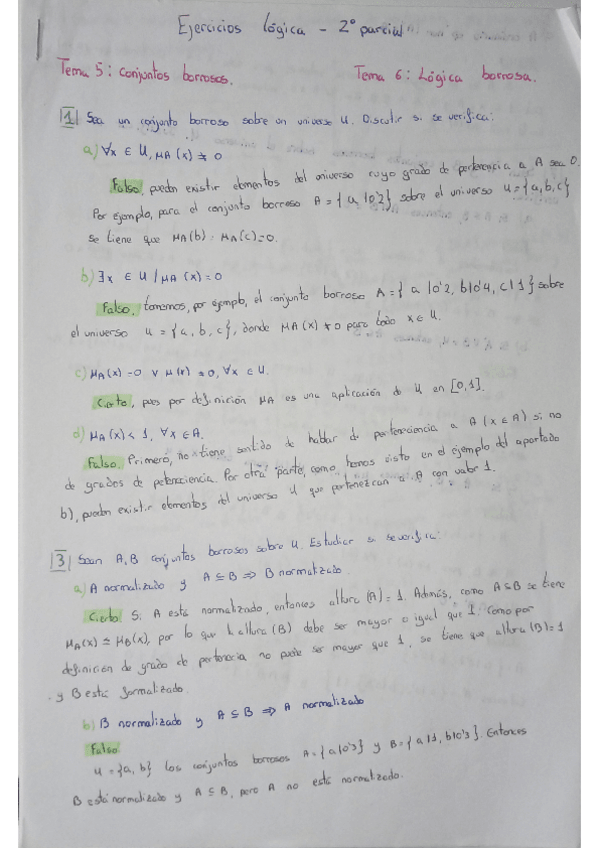 Ejercicios lógica - 2º parcial
Tema 5: Conjuntos borrosos. Tema 6: Lógica borrosa.
1 Sea un conjunto borroso sobre un universo U. Discutir si se verifica:
a) ∀x ∈ U, μA(x) ≠ 0
Falso, pueden existir elementos del universo cuyo grado de pertenencia a A sea 0.
Por ejemplo, para el conjunto borroso A = { a|0'2} sobre el universo U = {a,b,c}
se tiene que μA(b) = μA(c)=0.
b) ∃x ∈ U / μA(x)=0
Falso, tomemos, por ejemplo, el conjunto borroso A = { a|0'2, b|0'4, c|1 } sobre
el universo U = {a, b, c}, donde μA(x) ≠ 0 para todo x ∈ U.
c) μA(x)=0 v μ(x) ≠ 0, ∀x ∈ U.
Cierto, pues por definición μA es una aplicación de U en [0,1].
d) μA(x) < 1, ∀x ∈ A.
Falso. Primero, no tiene sentido de hablar de pertenciencia a A (x ∈ A) si no
de grados de petenciencia. Por otra parte, como hemos visto en el ejemplo del apartado
b), pueden existir elementos del universo U que pertenezcan a A con valor 1.
3 Sean A, B conjuntos borrosos sobre U. Estudiar si se verifica:
a) A normalizado y A ⊆ B ⇒ B normalizado.
Cierto. Si A está normalizado, entonces altura (A) = 1. Además, como A ⊆ B se tiene
μA(x) ≤ μB(x), por lo que la altura (B) debe ser mayor o igual que 1. Como por
definición de grado de pertenecia no puede ser mayor que 1, se tiene que altura (B)=1
y B está formalizado.
b) B normalizado y A ⊆ B ⇒ A normalizado
Falso.
U = {a, b} los conjuntos borrosos A = { a|0'3} y B = { a|1, b|0'3 }. Entonces
B está normalizado y A ⊆ B, pero A no está normalizado.